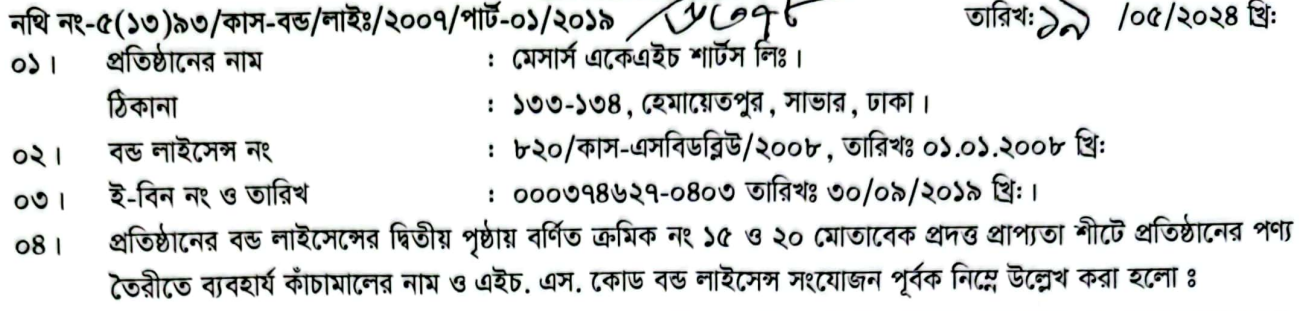 নথি নং-৫(১৩)৯৩/কাস-বন্ড/লাইঃ/২০০৭/পার্ট-০১/২০১৯ তারিখ: ১৯ /০৫/২০২৪ খ্রি:
০১। প্রতিষ্ঠানের নাম : মেসার্স একেএইচ শার্টস লিঃ।
ঠিকানা : ১৩৩-১৩৪, হেমায়েতপুর, সাভার, ঢাকা।
০২। বন্ড লাইসেন্স নং : ৮২০/কাস-এসবিডব্লিউ/২০০৮, তারিখঃ ০১.০১.২০০৮ খ্রি:
০৩। ই-বিন নং ও তারিখ : ০০০৩৭৪৬২৭-০৪০৩ তারিখঃ ৩০/০৯/২০১৯ খ্রি:।
০৪। প্রতিষ্ঠানের বন্ড লাইসেন্সের দ্বিতীয় পৃষ্ঠায় বর্ণিত ক্রমিক নং ১৫ ও ২০ মোতাবেক প্রদত্ত প্রাপ্যতা শীটে প্রতিষ্ঠানের পণ্য
তৈরীতে ব্যবহার্য কাঁচামালের নাম ও এইচ. এস. কোড বন্ড লাইসেন্স সংযোজন পূর্বক নিম্নে উল্লেখ করা হলো ঃ